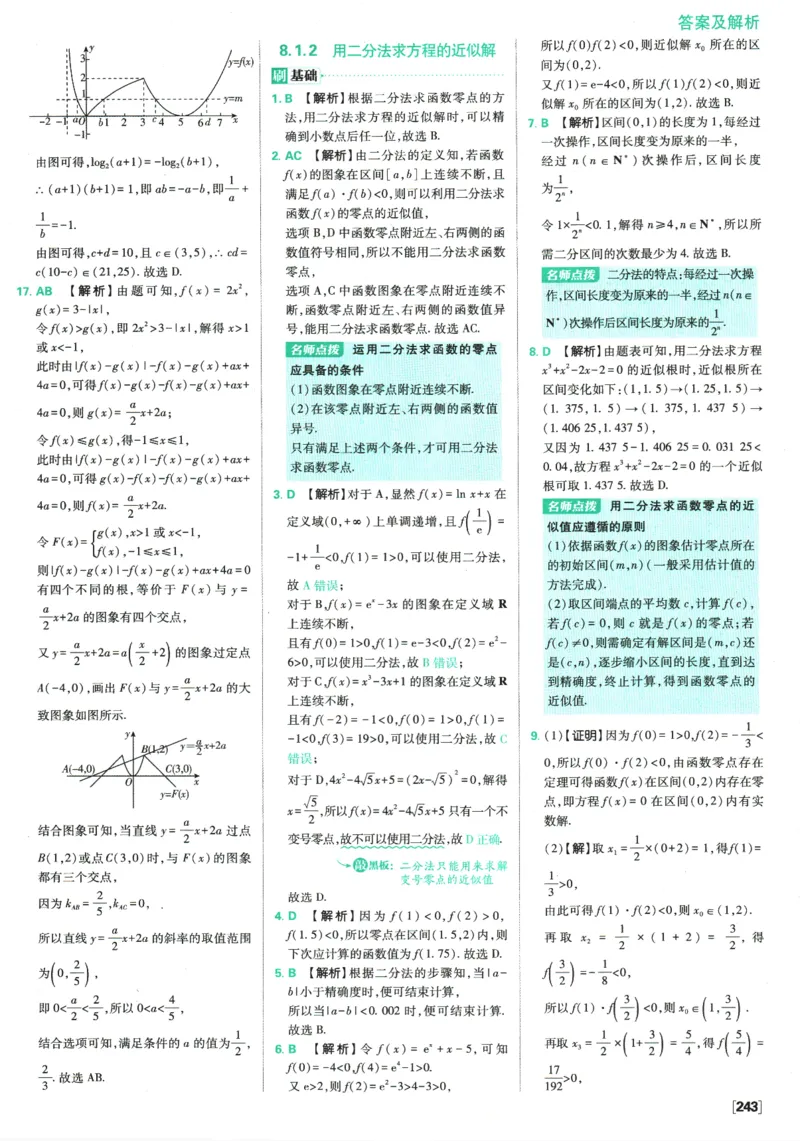 答案及解析
y
3
2
1
y=f(x)
y=m
-2 -1 a O b 1 2 3 c 4 5 6 d 7 x
-1
由图可得,log₂(a+1)=-log₂(b+1),
∴(a+1)(b+1)=1,即 ab=-a-b,即 1/a +
1/b =-1.
由图可得,c+d=10,且 c∈(3,5),∴cd=
c(10-c)∈(21,25). 故选 D.
17. AB 【解析】由题可知,f(x)=2x²,
g(x)=3-|x|,
令 f(x)>g(x),即 2x²>3-|x|,解得 x>1
或 x<-1,
此时由|f(x)-g(x)|-f(x)-g(x)+ax+
4a=0,可得 f(x)-g(x)-f(x)-g(x)+ax+
4a=0,则 g(x)= a/2 x+2a;
令 f(x)≤g(x),得-1≤x≤1,
此时由|f(x)-g(x)|-f(x)-g(x)+ax+
4a=0,可得 g(x)-f(x)-f(x)-g(x)+ax+
4a=0,则 f(x)= a/2 x+2a.
令 F(x)={g(x),x>1 或 x<-1,
f(x),-1≤x≤1,
则|f(x)-g(x)|-f(x)-g(x)+ax+4a=0
有四个不同的根,等价于 F(x)与 y=
a/2 x+2a 的图象有四个交点,
又 y= a/2 x+2a=a(x/2 +2)的图象过定点
A(-4,0),画出 F(x)与 y= a/2 x+2a 的大
致图象如图所示.
y
B(1,2)
y= a/2 x+2a
A(-4,0)
C(3,0)
O
x
y=F(x)
结合图象可知,当直线 y= a/2 x+2a 过点
B(1,2)或点 C(3,0)时,与 F(x)的图象
都有三个交点,
因为 k_AB= 2/5 ,k_AC=0,
所以直线 y= a/2 x+2a 的斜率的取值范围
为(0, 2/5 ),
即 0< a/2 < 2/5 ,所以 0<a< 4/5 ,
结合选项可知,满足条件的 a 的值为 1/2 ,
2/3 . 故选 AB.
8.1.2 用二分法求方程的近似解
刷基础
1. B 【解析】根据二分法求函数零点的方
法,用二分法求方程的近似解时,可以精
确到小数点后任一位,故选 B.
2. AC 【解析】由二分法的定义知,若函数
f(x)的图象在区间[a,b]上连续不断,且
满足 f(a)·f(b)<0,则可以利用二分法求
函数 f(x)的零点的近似值,
选项 B,D 中函数零点附近左、右两侧的函
数值符号相同,所以不能用二分法求函数
零点,
选项 A,C 中函数图象在零点附近连续不
断,函数零点附近左、右两侧的函数值异
号,能用二分法求函数零点. 故选 AC.
名师点拨 运用二分法求函数的零点
应具备的条件
(1)函数图象在零点附近连续不断.
(2)在该零点附近左、右两侧的函数值
异号.
只有满足上述两个条件,才可用二分法
求函数零点.
3. D 【解析】对于 A,显然 f(x)=ln x+x 在
定义域(0,+∞)上单调递增,且 f(1/e)=
-1+ 1/e <0,f(1)=1>0,可以使用二分法,
故 A 错误;
对于 B,f(x)=eˣ-3x 的图象在定义域 R
上连续不断,
且有 f(0)=1>0,f(1)=e-3<0,f(2)=e²-
6>0,可以使用二分法,故 B 错误;
对于 C,f(x)=x³-3x+1 的图象在定义域 R
上连续不断,
且有 f(-2)=-1<0,f(0)=1>0,f(1)=
-1<0,f(3)=19>0,可以使用二分法,故 C
错误;
对于 D,4x²-4√5x+5=(2x-√5)²=0,解得
x= √5/2 ,所以 f(x)=4x²-4√5x+5 只有一个不
变号零点,故不可以使用二分法,故 D 正确.
敲黑板: 二分法只能用来求解
变号零点的近似值
故选 D.
4. D 【解析】因为 f(1)<0,f(2)>0,
f(1.5)<0,所以零点在区间(1.5,2)内,则
下次应计算的函数值为 f(1.75). 故选 D.
5. B 【解析】根据二分法的步骤知,当|a-
b|小于精确度时,便可结束计算,
所以当|a-b|<0.002 时,便可结束计算.
故选 B.
6. B 【解析】令 f(x)=eˣ+x-5,可知
f(0)=-4<0,f(4)=e⁴-1>0.
又 e>2,则 f(2)=e²-3>4-3>0,
所以 f(0)f(2)<0,则近似解 x₀ 所在的区
间为(0,2).
又 f(1)=e-4<0,所以 f(1)f(2)<0,则近
似解 x₀ 所在的区间为(1,2). 故选 B.
7. B 【解析】区间(0,1)的长度为 1,每经过
一次操作,区间长度变为原来的一半,
经过 n(n∈N*)次操作后,区间长度
为 1/2ⁿ ,
令 1× 1/2ⁿ <0.1,解得 n≥4,n∈N*,所以所
需二分区间的次数最少为 4. 故选 B.
名师点拨 二分法的特点:每经过一次操
作,区间长度变为原来的一半,经过 n(n∈
N*)次操作后区间长度变为原来的 1/2ⁿ .
8. D 【解析】由题表可知,用二分法求方程
x³+x²-2x-2=0 的近似根时,近似根所在
区间变化如下:(1,1.5)→(1.25,1.5)→
(1.375,1.5)→(1.375,1.437 5)→
(1.406 25,1.437 5),
又因为 1.437 5-1.406 25=0.031 25<
0.04,故方程 x³+x²-2x-2=0 的一个近似
根可取 1.437 5. 故选 D.
名师点拨 用二分法求函数零点的近
似值应遵循的原则
(1)依据函数 f(x)的图象估计零点所在
的初始区间(m,n)(一般采用估计值的
方法完成).
(2)取区间端点的平均数 c,计算 f(c),
若 f(c)=0,则 c 就是 f(x)的零点;若
f(c)≠0,则需确定有解区间是(m,c)还
是(c,n),逐步缩小区间的长度,直到达
到精确度,终止计算,得到函数零点的
近似值.
9. (1)【证明】因为 f(0)=1>0,f(2)=- 1/3 <
0,所以 f(0)·f(2)<0,由函数零点存在
定理可得函数 f(x)在区间(0,2)内存在零
点,即方程 f(x)=0 在区间(0,2)内有实
数解.
(2)【解】取 x₁= 1/2 ×(0+2)=1,得 f(1)=
1/3 >0,
由此可得 f(1)·f(2)<0,则 x₀∈(1,2).
再取 x₂= 1/2 ×(1+2)= 3/2 ,得
f(3/2)=- 1/8 <0,
所以 f(1)·f(3/2)<0,则 x₀∈(1, 3/2 ).
再取 x₃= 1/2 ×(1+ 3/2 )= 5/4 ,得 f(5/4)=
17/192 >0,
[243]